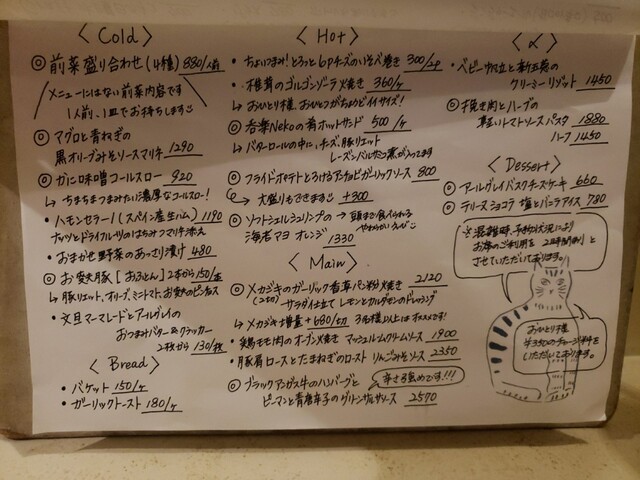 〈 Cold 〉
◎ 前菜盛り合わせ (4種) 880/人前
メニューにはない前菜内容です
1人前、1皿でお持ちします
◎ マグロと青ねぎの
黒オリーブみそソースマリネ 1290
◎ かに味噌コールスロー 920
↳ ちまちまつまみたい濃厚なコールスロー!
・ハモンセラーノ(スペイン産生ハム) 1190
ナッツとドライフルーツのはちみつマリネ添え
・おまかせ野菜のあっさり漬け 480
◎ お豚 [おふとん] 2本から 150/本
↳ 豚リエット、オリーブ、ミニトマト、のピンチョス
・文旦マーマレードとアールグレイの
おつまみバター&クラッカー
2枚から 130/枚
〈 Bread 〉
・バゲット 150/ヶ
・ガーリックトースト 180/ヶ
〈 Hot 〉
・ちょいつまみ! とろっとbpチーズのいそべ焼き 300/2p
・椎茸のゴルゴンゾーラ焼き 360/ヶ
↳ おひとり様、おひとつがちょうどイイサイズ!
◎ 呑楽Nekoの肴ホットサンド 500/ヶ
↳ バターロールの中に、チーズ、豚リエット
レーズンバルサミコ煮が入ってます
◎ フライドポテト とろけるアンチョビガーリックソース 800
↳ 大盛りもできます +300
◎ ソフトシェルシュリンプの → 頭まで食べられる
やわらかいえび
海老マヨ オレンジ 1330
〈 Main 〉
◎ メカジキのガーリック香草パン粉焼き 2120
(2切) サラダ仕立て レモンとカルダモンのドレッシング
↳ メカジキ増量 +680/切 3名様以上にはオススメです!
・鶏モモ肉のオーブン焼き マッシュルームクリームソース 1900
・豚肩ロースとたまねぎのロースト りんごみそソース 2350
◎ ブラックアンガス牛のハンバーグと
ピーマンと青唐辛子のグリーンサルサソース 2570
辛さ強めです!!!
〈 〆 〉
・ベビーホタテと新玉葱の
クリーミーリゾット 1450
◎ 挽き肉とハーブの
トマトソースパスタ 1880
ハーフ 1450
〈 Dessert 〉
◎ アールグレイバスクチーズケーキ 660
◎ テリーヌショコラ 塩とバニラアイス 780
※混雑時、予約状況により
お席のご利用を2時間制と
させていただいております。
おひとり様
¥350のチャージ料を
いただいております。